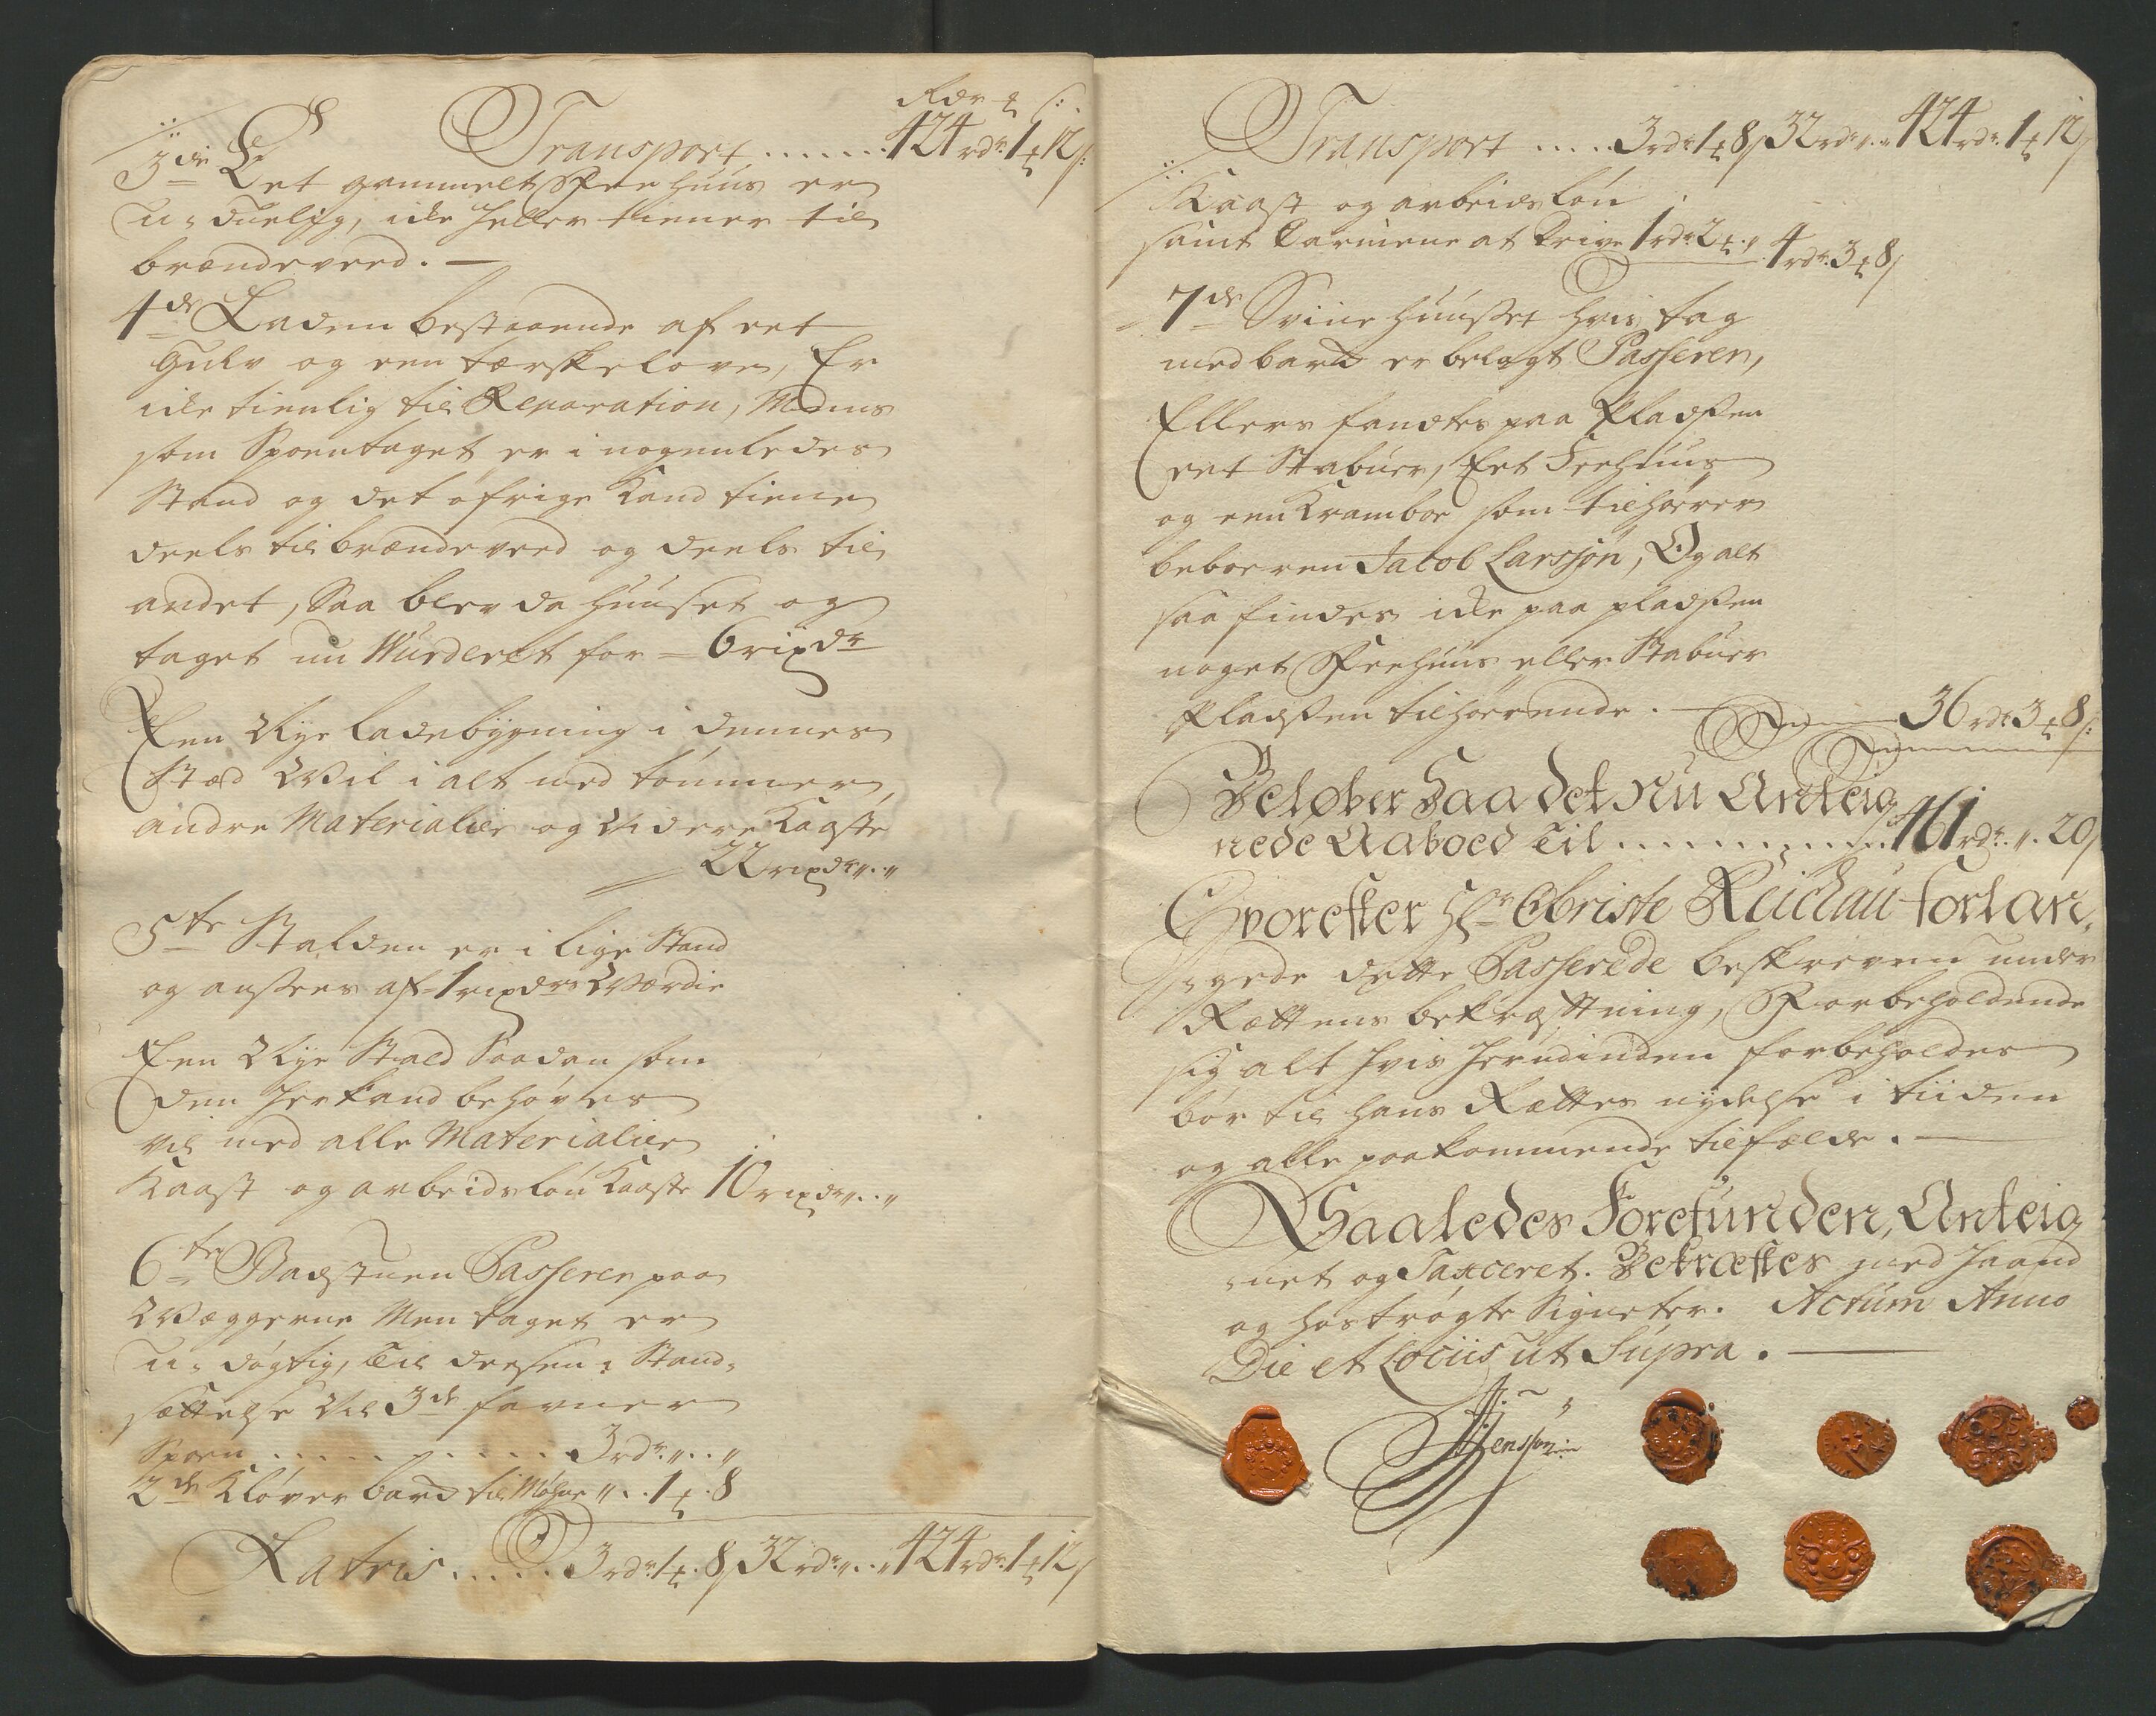 Rdr ₰ s:
Transport . . . . . . . 424 rdr. 1 ₰ 12 s:
3die Et gammelt Feehuus er
u-duelig, icke heller tiener til
brændeveed. —
4de Laden bestaaende af eet
Gulv og een tærskelove, Er
icke tienlig til Reparation, Mens
som Spoentaget er i nogenledes
Stand og det øfrige Kand tiene
deels til brændeveed og deels til
andet, Saa blev da huuset og
taget nu Wurderet for = 6 rixdr
Een Nye ladebygning i dennes
Stæd Wil i alt med tømmer,
andre Materialier og Videre Kaaste
22 rixdr „ . „
5te Stalden er i lige Stand
og ansees af 1 rixdrs Wærdie
Een Nye Stald Saadan som
den her kand behøves
vil med alle Materialier
Kaast og arbeidsløn Kaaste 10 rixdr „ . . „
6te Badstuen Passerer paa
Wæggerne Men taget er
u-døgtig, Til dessen i Stand-
sættelse Vil 3de favner
Spoen . . . . . . . . . . . 3 rdr. „ . . „
2de Kløver bard til Møhne „ . . 1 ₰ . 8
Latris . . . . . 3 rdr. 1 ₰. 8 s 32 rdr. „ . „ 424 rdr. 1 ₰ 12 s
Transport . . . . . 3 rdr. 1 ₰ 8 s 32 rdr. „ . „ 424 rdr. 1 ₰ 12 s
Kaast og arbeidsløn
samt Carmene at Drive 1 rdr. 2 ₰ . „ 4 rdr. 3 ₰ 8 s
7de Sviine huuset hvis tag
med bard er belagt Passerer,
Ellers fandtes paa Pladsen
eet Stabuer, Eet Feehuus
og een Kramboe som tilhører
beboeren Jacob Larssøn, Og alt
saa findes icke paa pladsen
noget Feehuus eller Stabuer
Pladsen tilhørende. — 36 rdr. 3 ₰ 8 s:
Beløber Saa det nu Anteig
nede Aaboed Til . . . . . . . . . . . . 461 rdr. „ . 20 s
Hvorefter Hr Christe Reichau forlan-
gede dette Passerede beskreven under
Rættens bekræftning, Forbeholdende
sig alt hvis herudinden forbeholdes
bør til hans Rættes nydelse i tiiden
og alle paakommende tilfælde. —
Saaledes Forefunden, Anteig
net og Taxceret. Bekræftes med Haand
og hostrøgte Signeter. Actum Anno
Die et Lociis ut Supra. —
Jensson